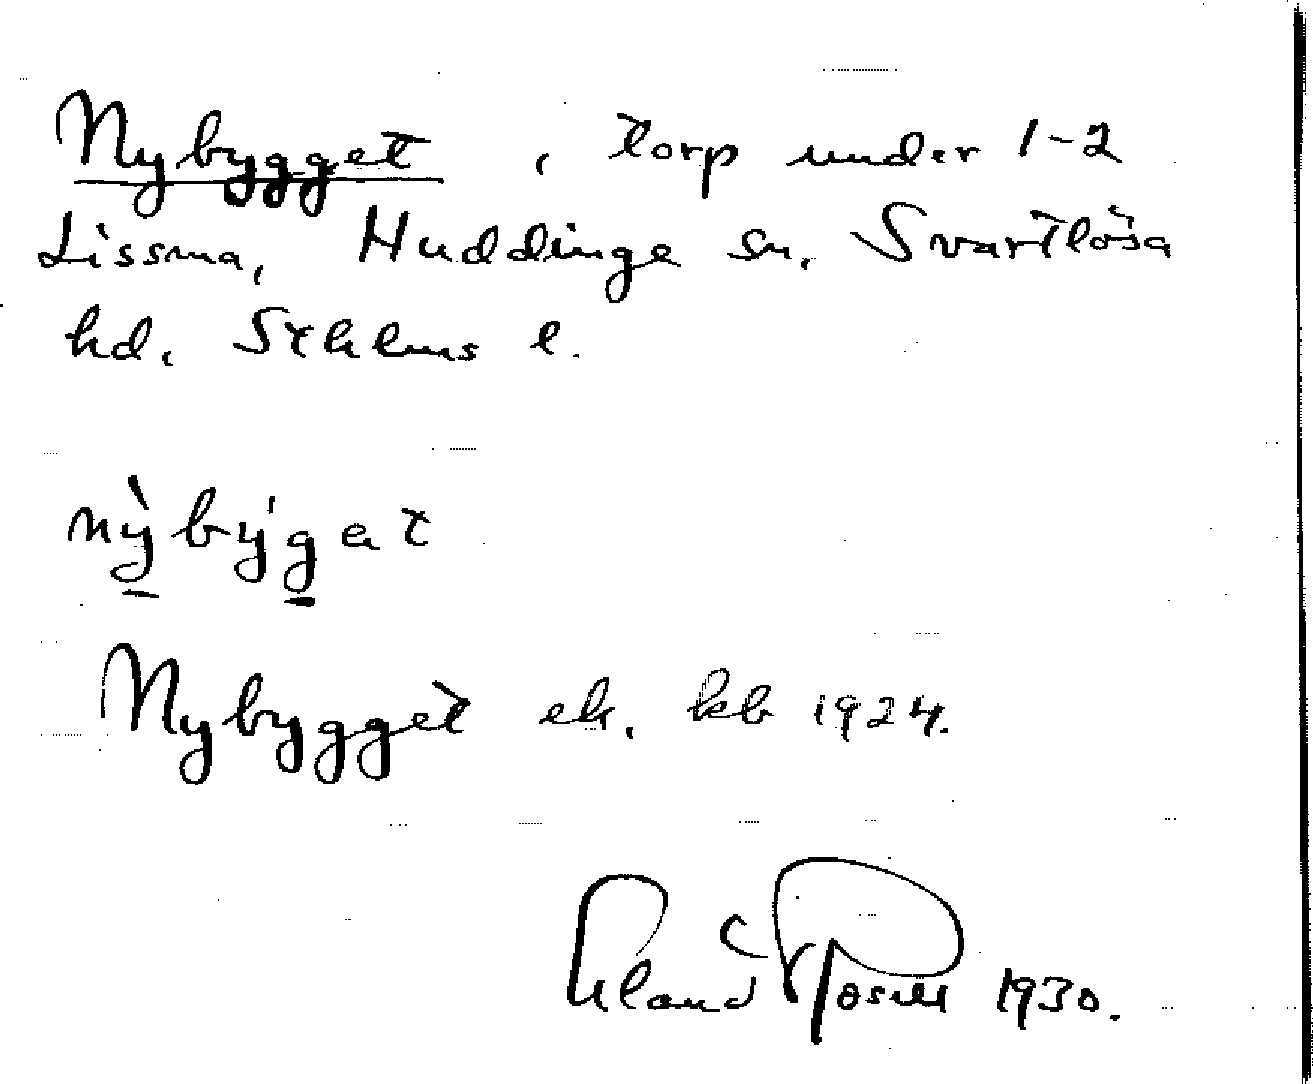 Nybygget, torp under 1-2
Lissma, Huddinge sn, Svartlösa
hd, Sthlms l.
nỳbýgat
Nybygget ek. kb 1924.
Erland Rosell 1930.